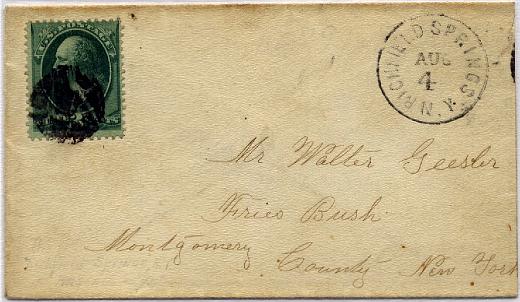 RICHFIELD SPRINGS N.Y.
AUG
4
Mr Walter Geesler
Fries Bush
Montgomery County New York